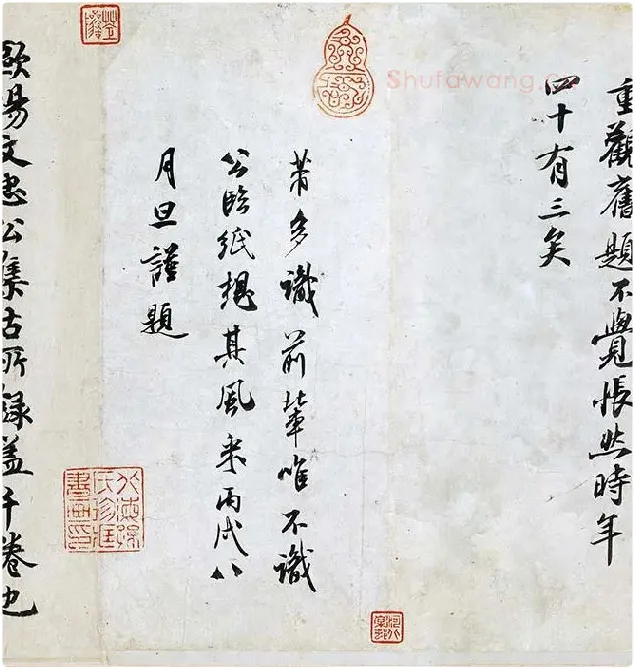 重觀舊題不覺悵然時年
四十有三矣
芾多識前輩唯不識
公臨紙想其風采丙戌八
月旦謹題
歐陽文忠公集古所錄蓋千卷也
Shufawang.c